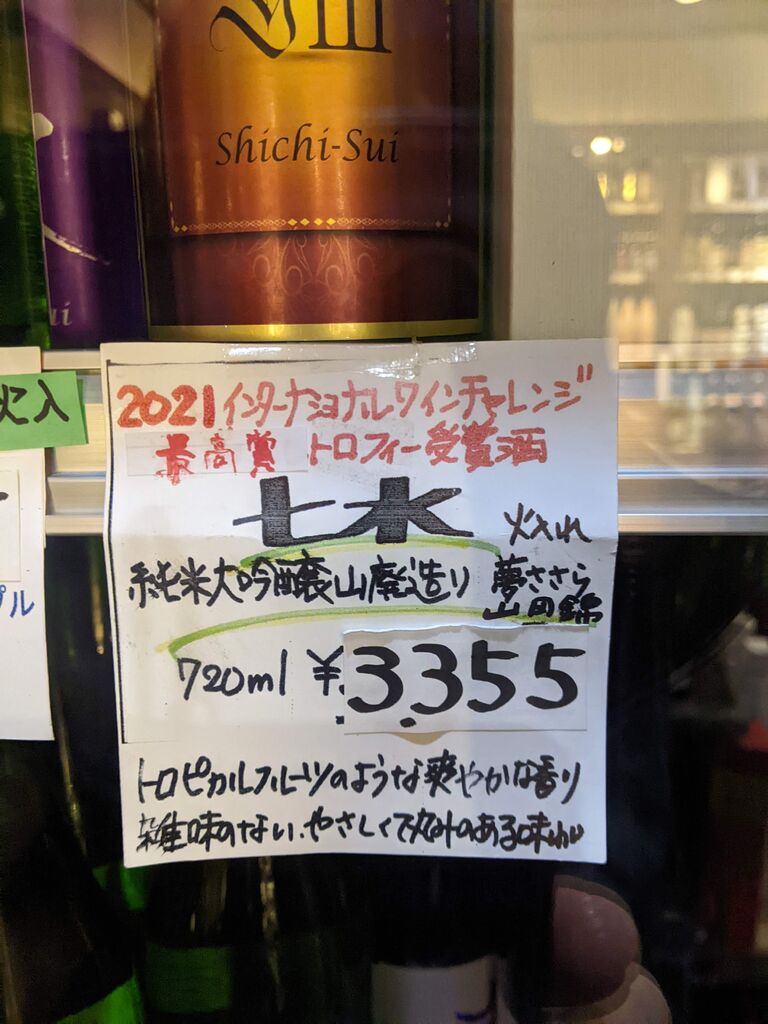 VIII
Shichi-Sui
ui
火入
プル
2021インターナショナルワインチャレンジ
最高賞 トロフィー受賞酒
七水 火入れ
純米大吟醸山廃造り 夢ささら
山田錦
720ml ¥3,355
トロピカルフルーツのような爽やかな香り
雑味のない、やさしくふくらみのある味わい